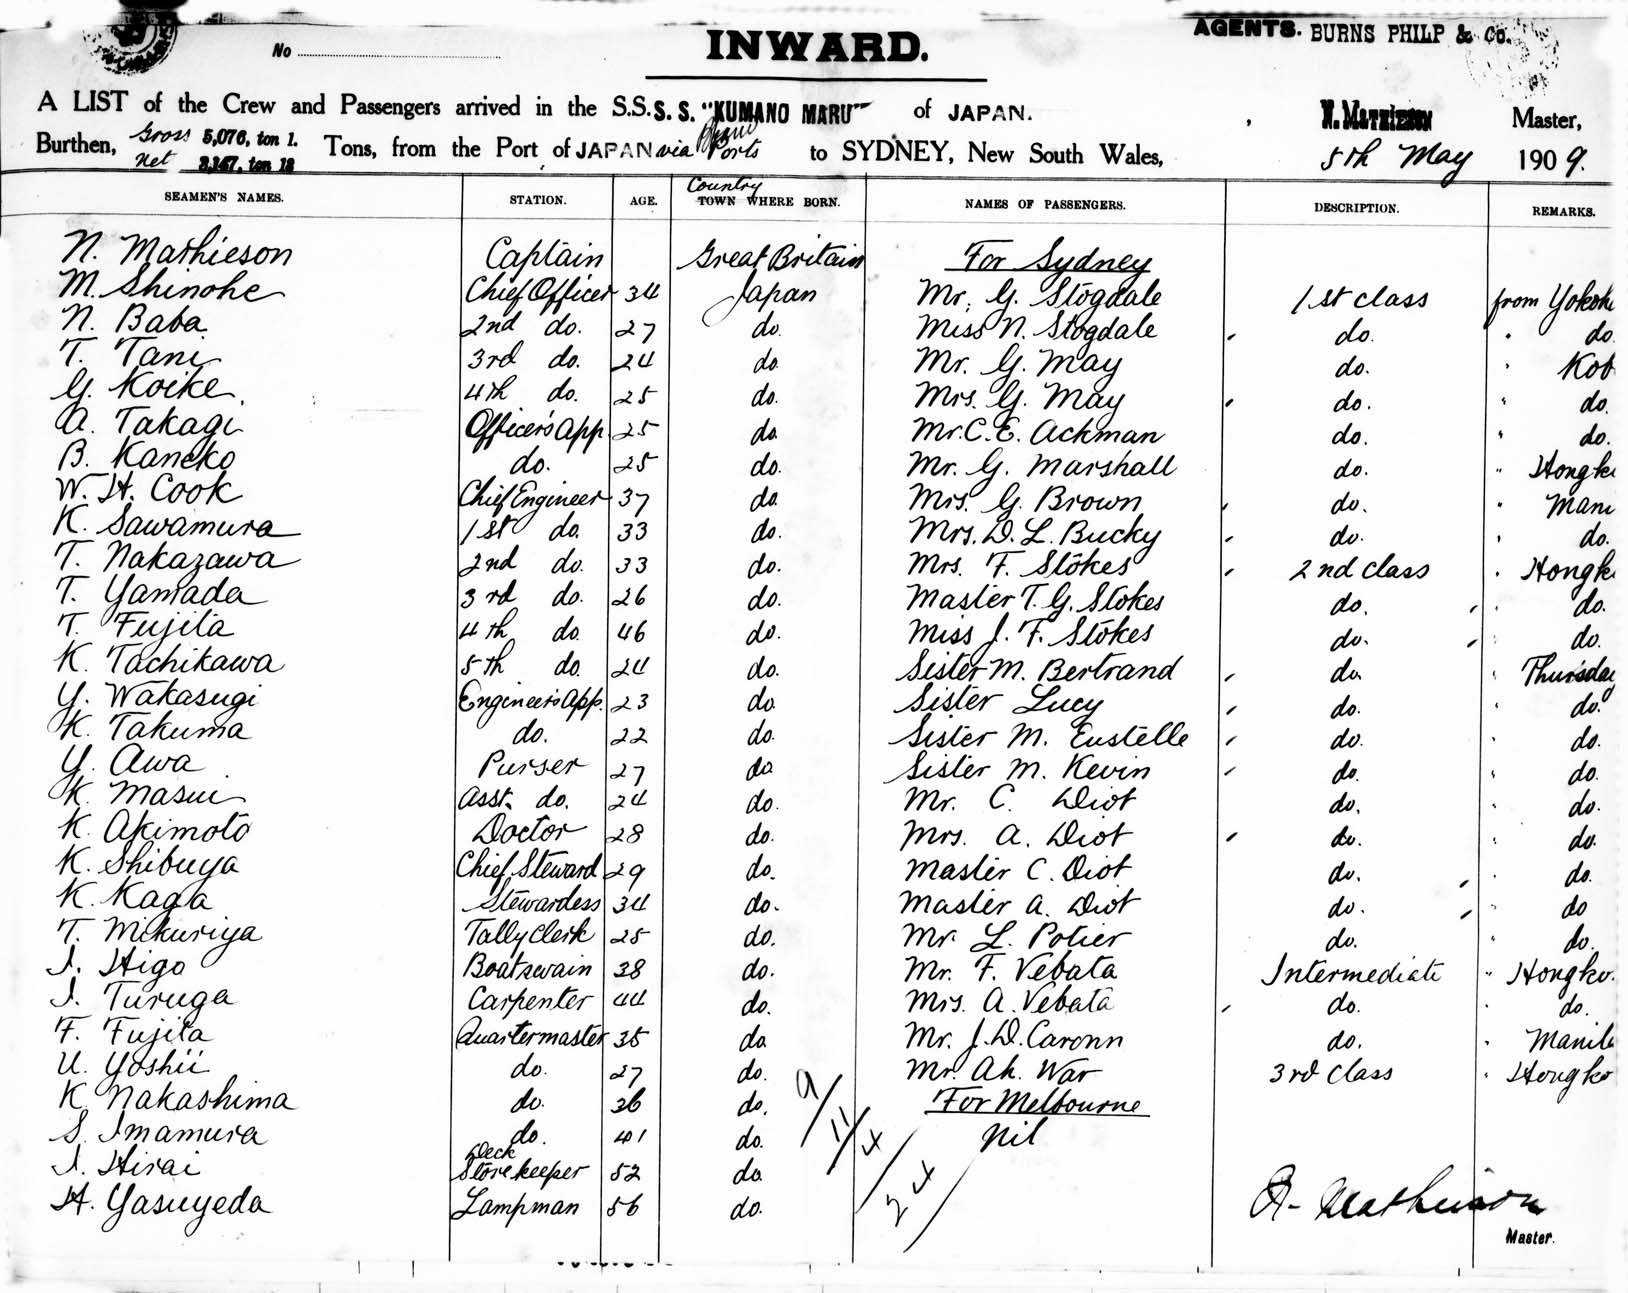 No
INWARD.
AGENTS. BURNS PHILP & Co.
A LIST of the Crew and Passengers arrived in the S.S. S. S. "KUMANO MARU" of JAPAN. N. MATHIESON Master,
Burthen, Gross 5,076, ton 1. Net 3,147, ton 18 Tons, from the Port of JAPAN via Ports to SYDNEY, New South Wales, 5th May 1909.
SEAMEN'S NAMES. STATION. AGE. Country TOWN WHERE BORN. NAMES OF PASSENGERS. DESCRIPTION. REMARKS.
N. Mathieson Captain Great Britain For Sydney
M. Shinohe Chief Officer 34 Japan Mr. G. Stogdale 1st class from Yokoh
N. Baba 2nd do. 27 do. Miss N. Stogdale do. " do.
T. Tani 3rd do. 24 do. Mr. G. May do. " Kob
G. Koike 4th do. 25 do. Mrs. G. May do. " do.
A. Takagi Officer's App. 25 do. Mr. C. E. Ackman do. " do.
B. Kaneko do. 25 do. Mr. G. Marshall do. " Hongk
W. H. Cook Chief Engineer 37 do. Mrs. G. Brown do. " Mani
K. Sawamura 1st do. 33 do. Mrs. D. L. Bucky do. " do.
T. Nakazawa 2nd do. 33 do. Mrs. F. Stokes 2nd class " Hongk
T. Yamada 3rd do. 26 do. Master T. G. Stokes do. " do.
T. Fujita 4th do. 46 do. Miss J. F. Stokes do. " do.
K. Tachikawa 5th do. 24 do. Sister M. Bertrand do. " Thursday
Y. Wakasugi Engineer's App. 23 do. Sister Lucy do. " do.
K. Takuma do. 22 do. Sister M. Eustelle do. " do.
Y. Awa Purser 27 do. Sister M. Kevin do. " do.
K. Masui Asst. do. 24 do. Mr. C. Diot do. " do.
K. Akimoto Doctor 28 do. Mrs. A. Diot do. " do.
K. Shibuya Chief Steward 29 do. Master C. Diot do. " do.
K. Kaga Stewardess 34 do. Master A. Diot do. " do
T. Mikuriya Tally Clerk 25 do. Mr. L. Potier do. " do.
I. Higo Boatswain 38 do. Mr. F. Vebata Intermediate " Hongko.
I. Turuga Carpenter 44 do. Mrs. A. Vebata do. do.
F. Fujita Quartermaster 35 do. Mr. J. D. Caronn do. " Manila
U. Yoshii do. 27 do. Mr. Ah. War 3rd class " Hongko
K. Nakashima do. 36 do. For Melbourne
S. Imamura do. 41 do. Nil
I. Hirai Deck Storekeeper 52 do.
H. Yasuyeda Lampman 56 do.
9/11/4/24/
N. Mathieson
Master.